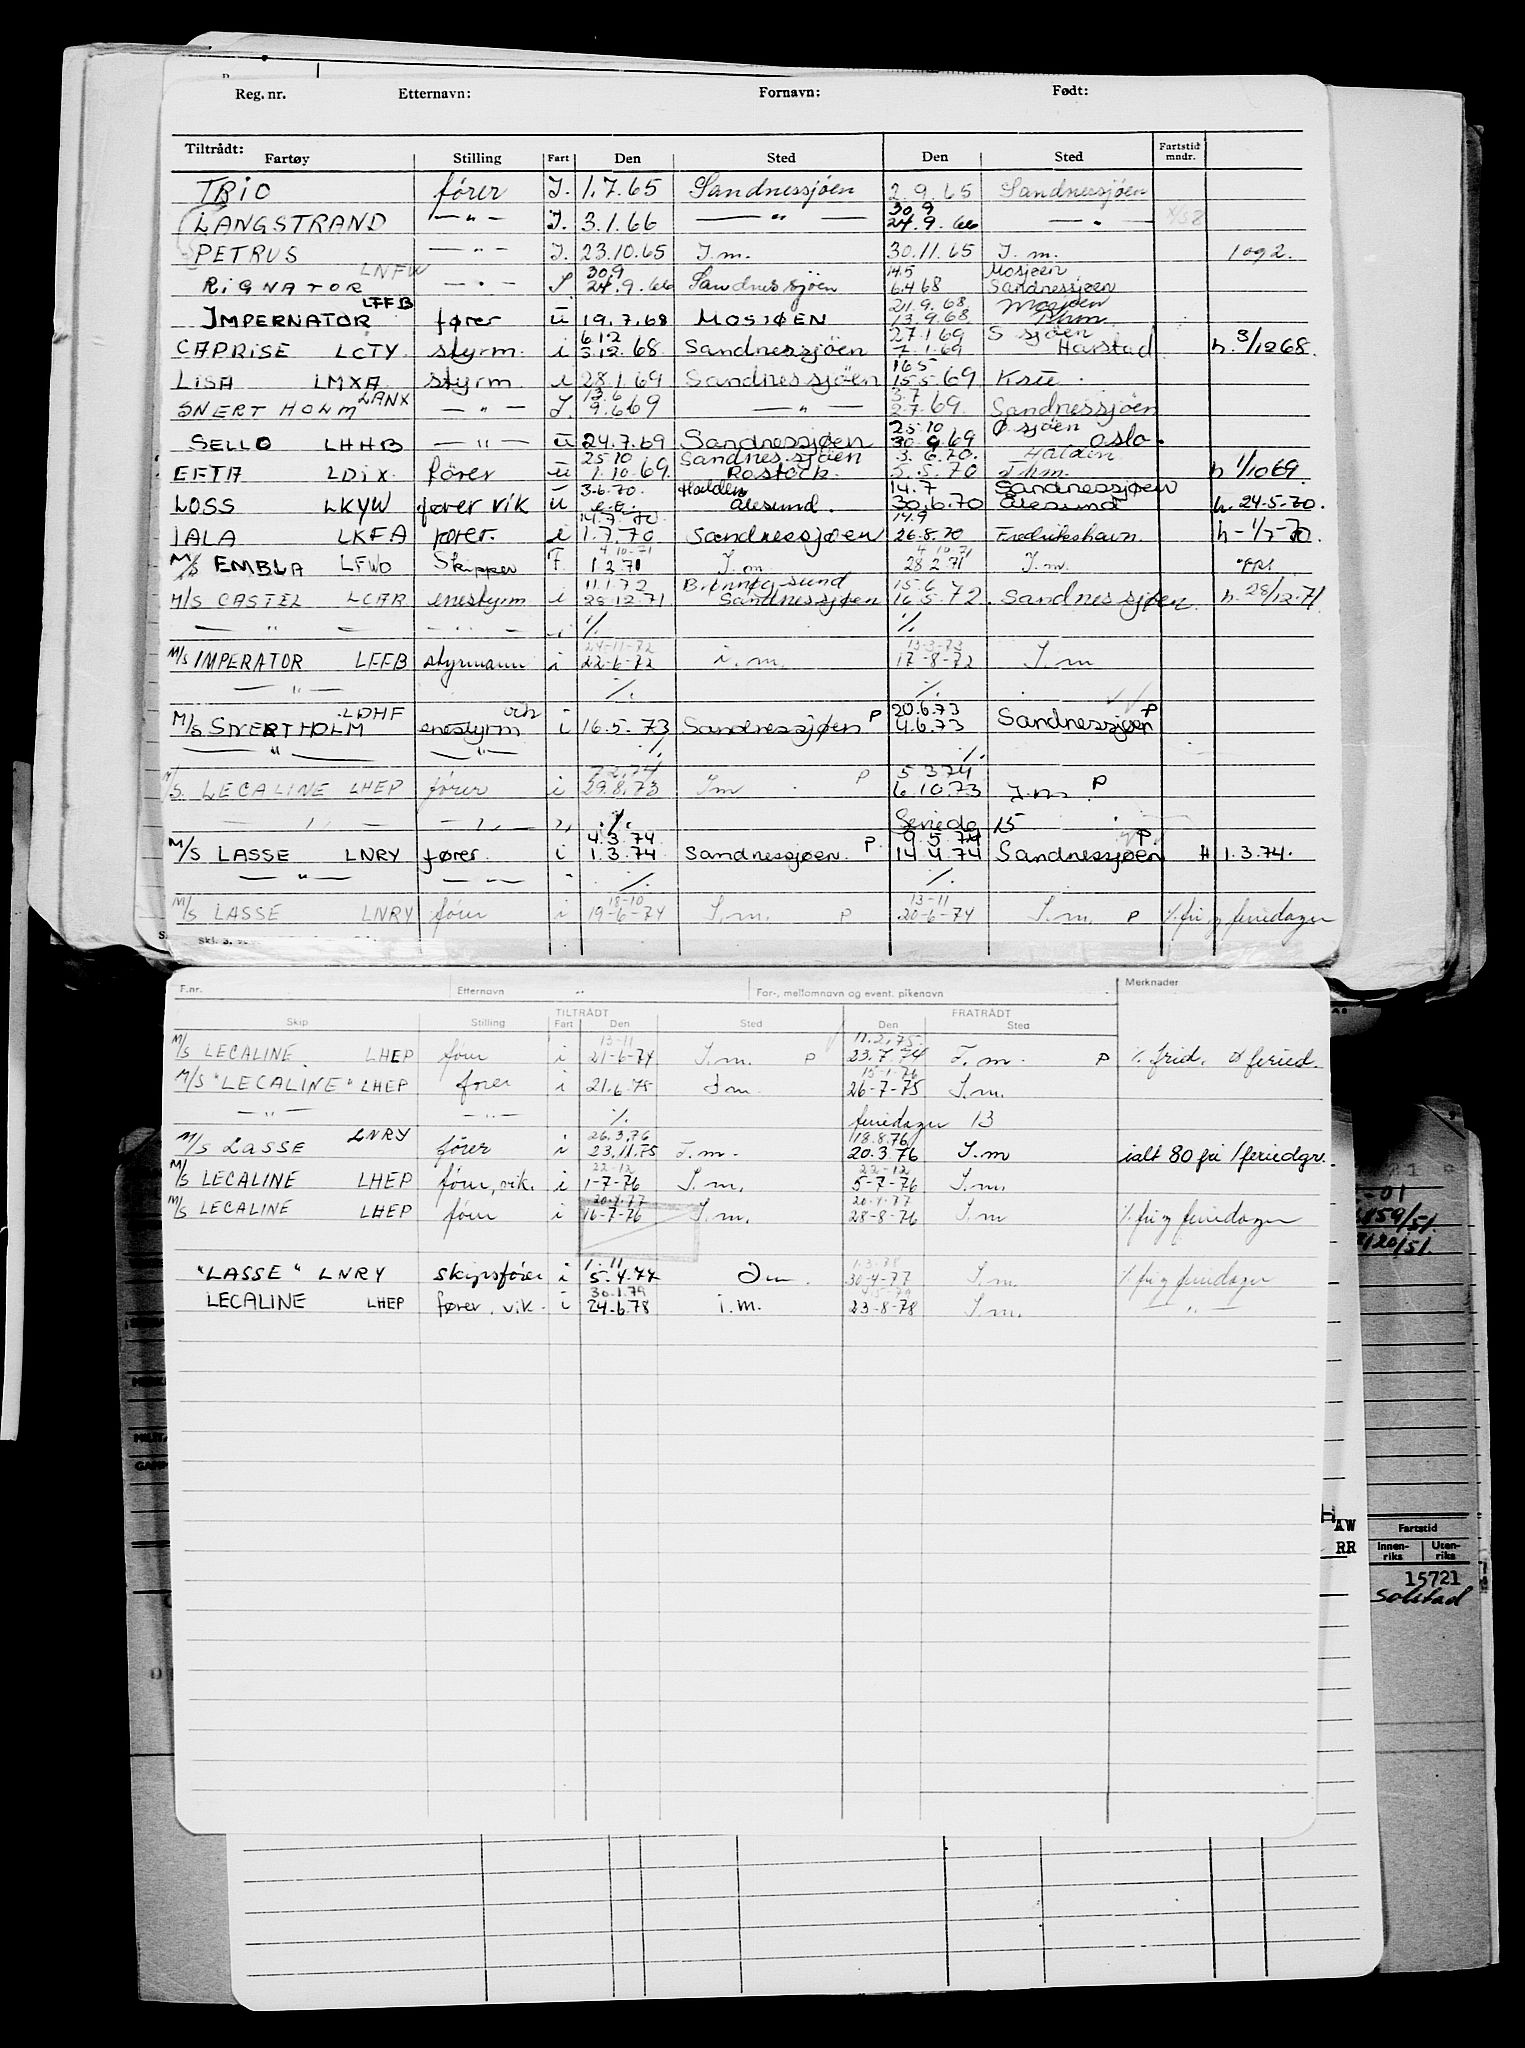 Reg. nr. Etternavn: Fornavn: Født:
Tiltrådt:
Fartøy Stilling Fart Den Sted Den Sted Fartstid mndr.
TRIO fører I. 1.7.65 Sandnessjöen 2.9.65 Sandnessjöen
30.9
LANGSTRAND — " — I. 3.1.66 — " — 24.9.66 — " —
PETRUS — " — I. 23.10.65 I.m. 30.11.65 I.m. 1 og 2.
LNFW 30.9 14.5 Mosjöen
RIGNATOR — " — I 24.9.66 Sandnessjöen 6.4.68 Sandnessjöen
LFFB 21.9.68 Mosjöen
IMPERNATOR fører u 19.7.68 MOSJØEN 13.9.68
6.12 27.1.69 S sjöen
CAPRISE LCTY styrm. i 3.12.68 Sandnessjöen 7.1.69 Harstad h. 3/12 68.
16.5
LISA LMXA styrm i 28.1.69 Sandnessjöen 15.5.69
LANX 13.6 3.7
SNERTHOLM — " — I. 9.6.69 — " — 2.7.69. Sandnessjöen
25.10
SELLO LHHB — " — u 24.7.69 Sandnessjøen 30.9.69 oslo.
25.10 Sandnessjöen 3.6.70. Halden
EFTA LDIX fører u 1.10.69 Rostock. 5.5.70 h 1/10 69.
3.6.70. Halden 14.7 Sandnessjøen
LOSS LKYW fører vik u Ålesund. 30.6.70 Ålesund h. 24-5-70.
14.7.70 14.9
IALA LKFA fører. i 1.7.70 Sandnessjøen 26.8.70 Fredrikshavn. h - 1/7-70.
4.10.71 4.10.71
M/S EMBLA LFWO Skipper F. 1.2.71 I.m 28.2.71 I.m.
11.1.72 Brønnøysund 15.6
M/S CASTEL LCAR enestyrm i 28.12.71 Sandnessjøen 16.5.72. Sandnessjøen h. 28/12.71
— " — — " — " ./. ./.
24-11-72 13-3-73
M/S IMPERATOR LFFB styrmann i 22-6-72 i.m. 17-8-72 I.m
— " — ./. ./.
LDHF 20.6.73
M/S SNERTHOLM enestyrm i 16.5.73 Sandnessjøen P 4.6.73 Sandnessjøen P
— " — — " — ./. ./.
5.3.74
M/S. LECALINE LHEP fører i 29.8.73 I.m P 6.10.73 I.m. P
— " — — " — " ./. feriedg 15
4.3.74 9.5.74
M/S LASSE LNRY fører. i 1.3.74 Sandnessjøen. P 14.4.74 Sandnessjøen P H 1.3.74.
— " — — " — " ./. ./.
18-10 13-11
M/S LASSE LNRY fører i 19-6-74 I.m. P 20-6-74 I.m. P ./. fri og feriedager
F.nr. Etternavn For-, mellomnavn og event. pikenavn Merknader
TILTRÅDT FRATRÅDT
Skip Stilling Fart Den Sted Den Sted
13-11 11.2.75.
M/S LECALINE LHEP fører i 21-6-74 I.m. P 23.7.74 I.m. P ./. frid. og feried.
15-1-76
M/S "LECALINE" LHEP fører i 21.6.75 I m. 26-7-75 I.m.
— " — — " — ./. feriedager 13
LNRY 26.3.76 18.8.76
M/S LASSE fører i 23.11.75 I.m. 20.3.76 I.m ialt 80 fri/feriedgr.
22-12 22-12
M/S LECALINE LHEP fører, vik. i 1-7-76 I.m. 5-7-76 I.m.
20.4.77 20.4.77
M/S LECALINE LHEP fører i 16-7-76 I.m. 28-8-76 I.m ./. fri og feriedager
1.11 1.3.78
"LASSE" LNRY skipsfører i 5.4.77 I m. 30-4-77 I.m. ./. fri og feriedager
30.1.79
LECALINE LHEP fører, vik. i 24.6.78 i.m. 23-8-78 I.m. — " —
AW
RR
Fartstid
Innenriks Utenriks
15721
Solstad